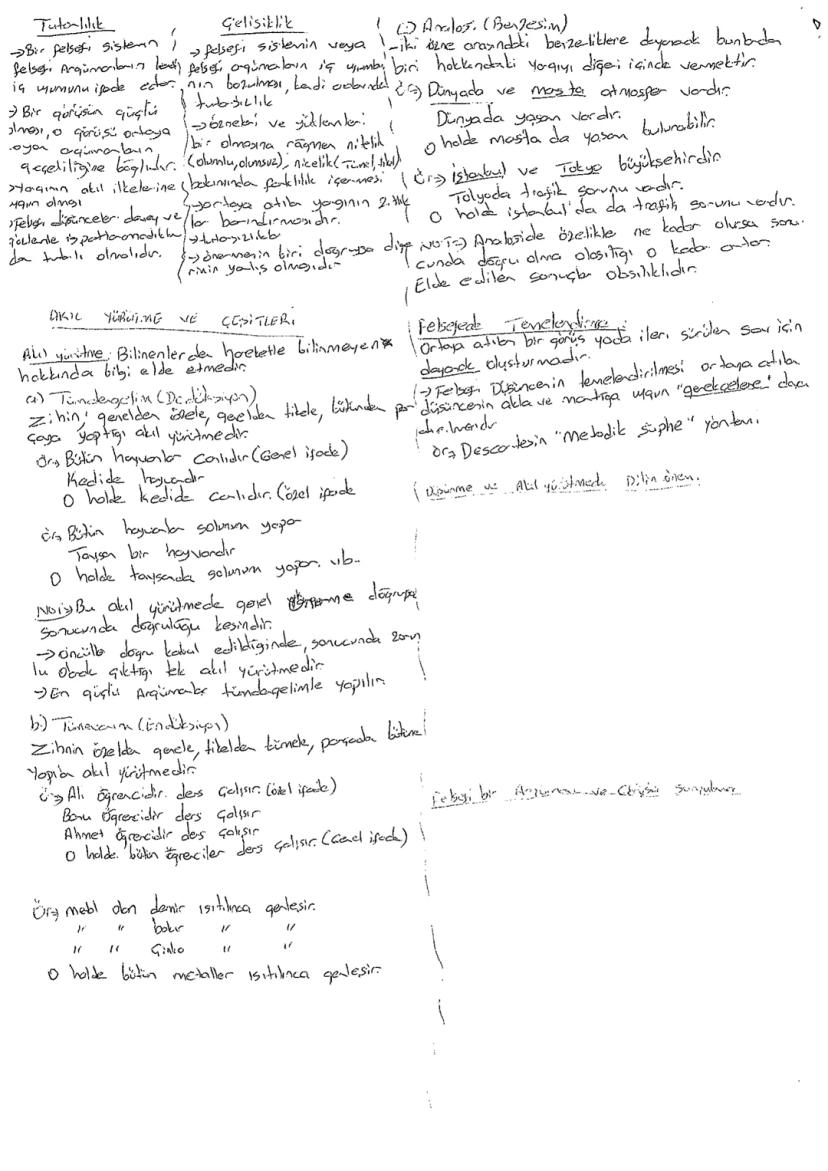 Tutarlılık
→Bir felsefi sistemin
felsefi Argümanların kendi
iç uyumunu ifade eder.
→ Bir görüşün güçlü
olması, o görüşü ortaya
koyan argümanların
geçerliliğine bağlıdır.
→Yargının akıl ilkelerine
uygun olması
→felsefi düşünceler deney ve
gözlemle ispatlanamadıkları
da tutarlı olmalıdır.
Çelişiklik
→ felsefi sistemin veya
felsefi argümanların iç uyumu
nın bozulması, kendi aralarındaki
tutarsızlık
→özneleri ve yüklemleri
bir olmasına rağmen nitelik
(olumlu, olumsuz), nicelik (Tümel, tikel)
bakımından farklılık içermesi
→ortaya atılan yargının
barındırmasıdır.
→tutarsızlıktır
→önermenin biri doğruysa diğe
rinin yanlış olmasıdır
c) Analoji (Benzeşim)
-iki özne arasındaki benzerliklere dayanarak bunlardan
biri hakkındaki yargıyı diğeri içinde vermektir.
Ör→ Dünyada ve marsta atmosfer vardır.
Dünyada yaşam vardır.
O halde marsta da yaşam bulunabilir.
Ör→ İstanbul ve Tokyo büyükşehirdir
Tokyoda trafik sorunu vardır.
O halde istanbul'da da trafik sorunu vardır.
NOT→ Analojide özelikle ne kadar olursa sonu
cunda doğru olma olasılığı o kadar artar.
Elde edilen sonuçlar olasılıklıdır.
AKIL YÜRÜTME VE ÇEŞİTLERİ
Akıl yürütme: Bilinenlerden hareketle bilinmeyen
hakkında bilgi elde etmedir.
a) Tümdengelim (Dedüksiyon)
Zihin' genelden özele, genelden tikele, bütünden par
çaya yaptığı akıl yürütmedir.
Ör→ Bütün hayvanlar canlıdır (Genel ifade)
Kedide hayvandır
O halde kedide canlıdır. (özel ifade
Ör→ Bütün hayvanlar solunum yapar
Tavşan bir hayvandır
O halde tavşanda solunum yapar. vb..
NOT→Bu akıl yürütmede genel önerme doğruysa
sonucunda doğruluğu kesindir.
→öncüller doğru kabul edildiğinde, sonucunda zorun
lu olarak çıktığı tek akıl yürütmedir
→En güçlü Argümanlar tümdengelimle yapılır
b) Tümevarım (Endüksiyon)
Zihnin özelden genele, tikelden tümele, parçadan bütüne
yapılan akıl yürütmedir.
Ör→ Ali öğrencidir. ders çalışır. (özel ifade)
Banu öğrencidir ders çalışır
Ahmet öğrencidir ders çalışır
O halde. bütün öğrenciler ders çalışır. (Genel ifade)
Ör→ metal olan demir ısıtılınca genleşir.
" " bakır " "
" " Çinko " "
O halde bütün metaller ısıtılınca genleşir.
Felsefede Temellendirme:
Ortaya atılan bir görüş yada ileri sürülen sav için
dayanak oluşturmadır.
→ Felsefi Düşüncenin temelendirilmesi ortaya atılan
düşüncenin akla ve mantığa uygun "gerekçelere" daya
dırılmasıdır
Ör→ Descartesin "metodik şüphe" yöntemi
Düşünme ve Akıl yürütmede Dilin önemi
Felsefi bir Argümanı ve Görüşü Sorgulama